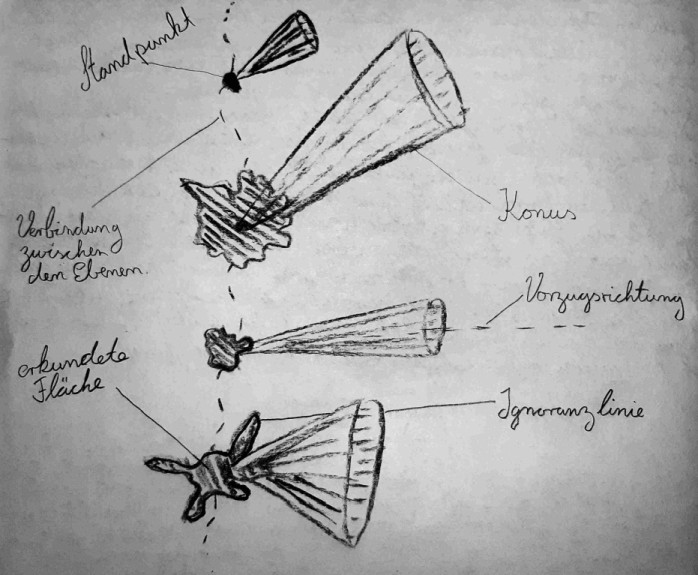 Standpunkt
Verbindung
zwischen
den Ebenen.
Konus
Vorzugsrichtung
erkundete
Fläche
Ignoranzlinie